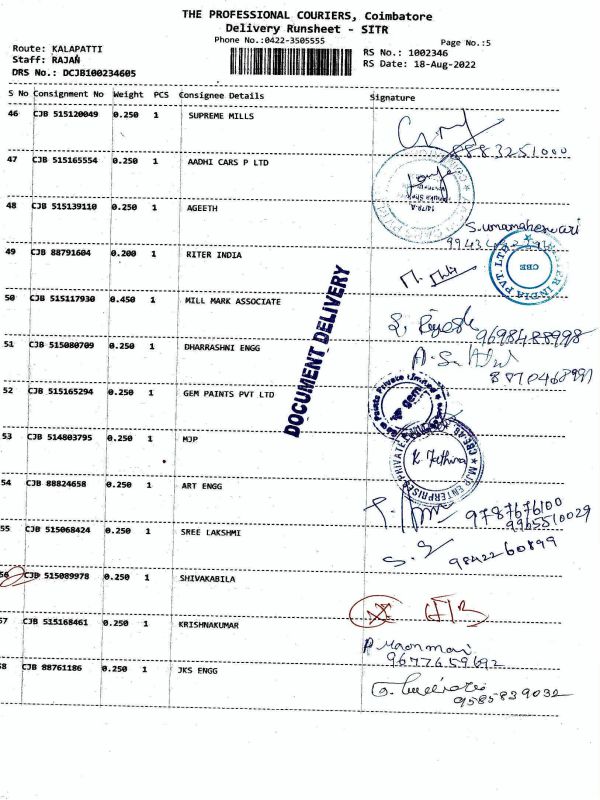 THE PROFESSIONAL COURIERS, Coimbatore
Delivery Runsheet - SITR
Phone No.:0422-3505555
Page No.:5
Route: KALAPATTI
RS No.: 1002346
Staff: RAJAN
RS Date: 18-Aug-2022
DRS No.: DCJB100234605
S No Consignment No Weight PCS Consignee Details Signature
46 CJB 515120049 0.250 1 SUPREME MILLS
8883251000
47 CJB 515165554 0.250 1 AADHI CARS P LTD
48 CJB 515139110 0.250 1 AGEETH
S.umamaheswari
49 CJB 88791604 0.200 1 RITER INDIA
CBE
INDIA PVT. LTD
50 CJB 515117930 0.450 1 MILL MARK ASSOCIATE
DOCUMENT DELIVERY
9698488998
51 CJB 515080709 0.250 1 DHARRASHNI ENGG
52 CJB 515165294 0.250 1 GEM PAINTS PVT LTD
gem Paints Private Limited
53 CJB 514803795 0.250 1 MJP
MJP ENTERPRISES PRIVATE
54 CJB 88824658 0.250 1 ART ENGG
9787676100
9965510029
55 CJB 515068424 0.250 1 SREE LAKSHMI
9842260899
56 CJB 515089978 0.250 1 SHIVAKABILA
57 CJB 515168461 0.250 1 KRISHNAKUMAR
9677659692
58 CJB 88761186 0.250 1 JKS ENGG
9585839032